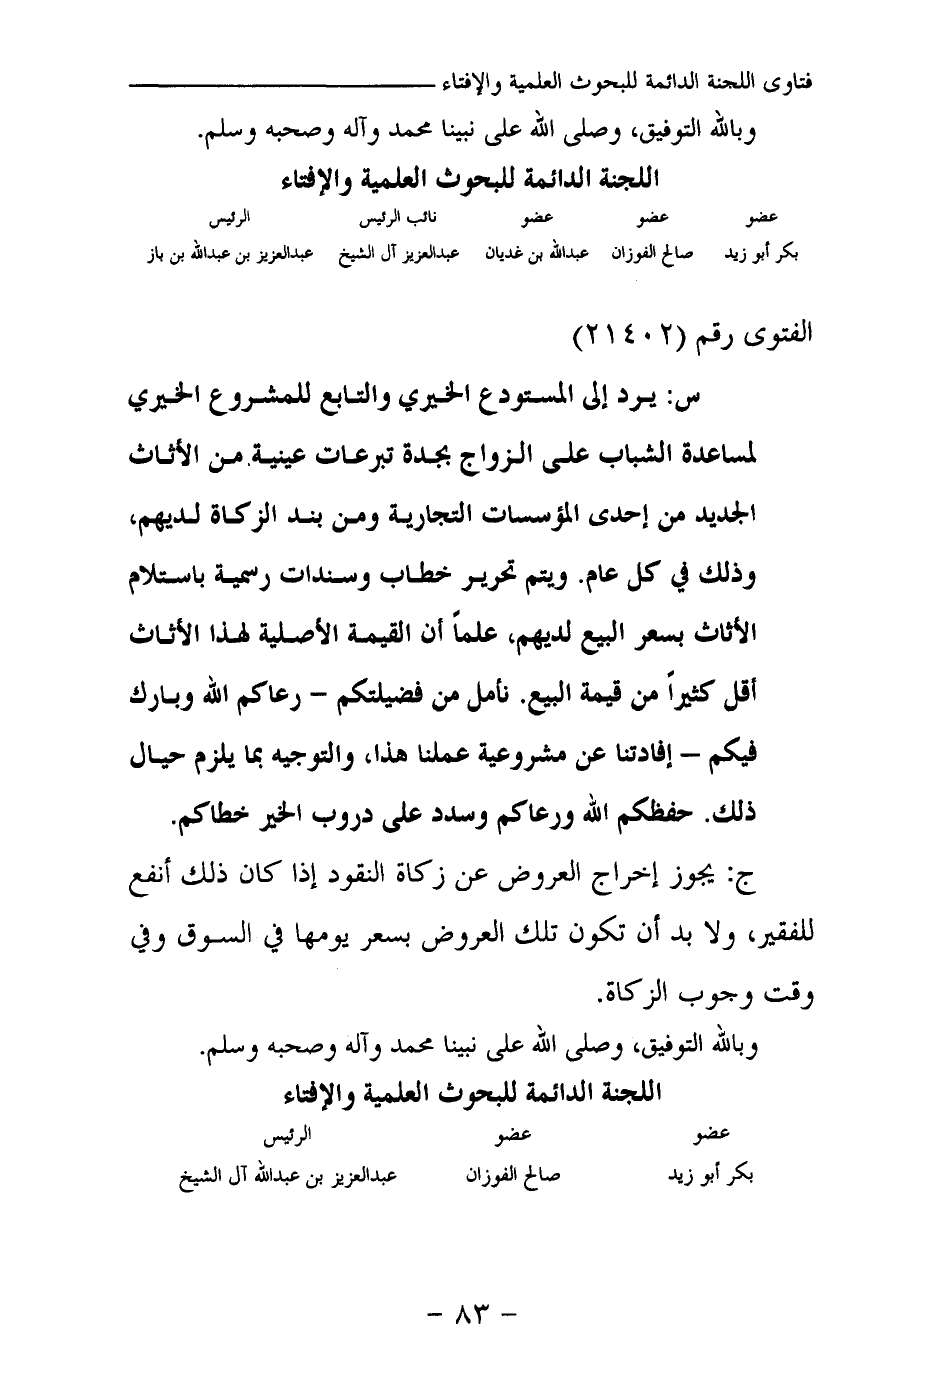 فتاوى اللجنة الدائمة للبحوث العلمية والإفتاء
وبالله التوفيق، وصلى الله على نبينا محمد وآله وصحبه وسلم.
اللجنة الدائمة للبحوث العلمية والإفتاء
عضو عضو عضو نائب الرئيس الرئيس
بكر أبو زيد صالح الفوزان عبدالله بن غديان عبدالعزيز آل الشيخ عبدالعزيز بن عبدالله بن باز
الفتوى رقم (٢١٤٠٢)
س: يرد إلى المستودع الخيري والتابع للمشروع الخيري
لمساعدة الشباب على الزواج بجدة تبرعات عينية من الأثاث
الجديد من إحدى المؤسسات التجارية ومن بند الزكاة لديهم،
وذلك في كل عام. ويتم تحرير خطاب وسندات رسمية باستلام
الأثاث بسعر البيع لديهم، علماً أن القيمة الأصلية لهذا الأثاث
أقل كثيراً من قيمة البيع. نأمل من فضيلتكم – رعاكم الله وبارك
فيكم – إفادتنا عن مشروعية عملنا هذا، والتوجيه بما يلزم حيال
ذلك. حفظكم الله ورعاكم وسدد على دروب الخير خطاكم.
ج: يجوز إخراج العروض عن زكاة النقود إذا كان ذلك أنفع
للفقير، ولا بد أن تكون تلك العروض بسعر يومها في السوق وفي
وقت وجوب الزكاة.
وبالله التوفيق، وصلى الله على نبينا محمد وآله وصحبه وسلم.
اللجنة الدائمة للبحوث العلمية والإفتاء
عضو عضو الرئيس
بكر أبو زيد صالح الفوزان عبدالعزيز بن عبدالله آل الشيخ
– ٨٣ –